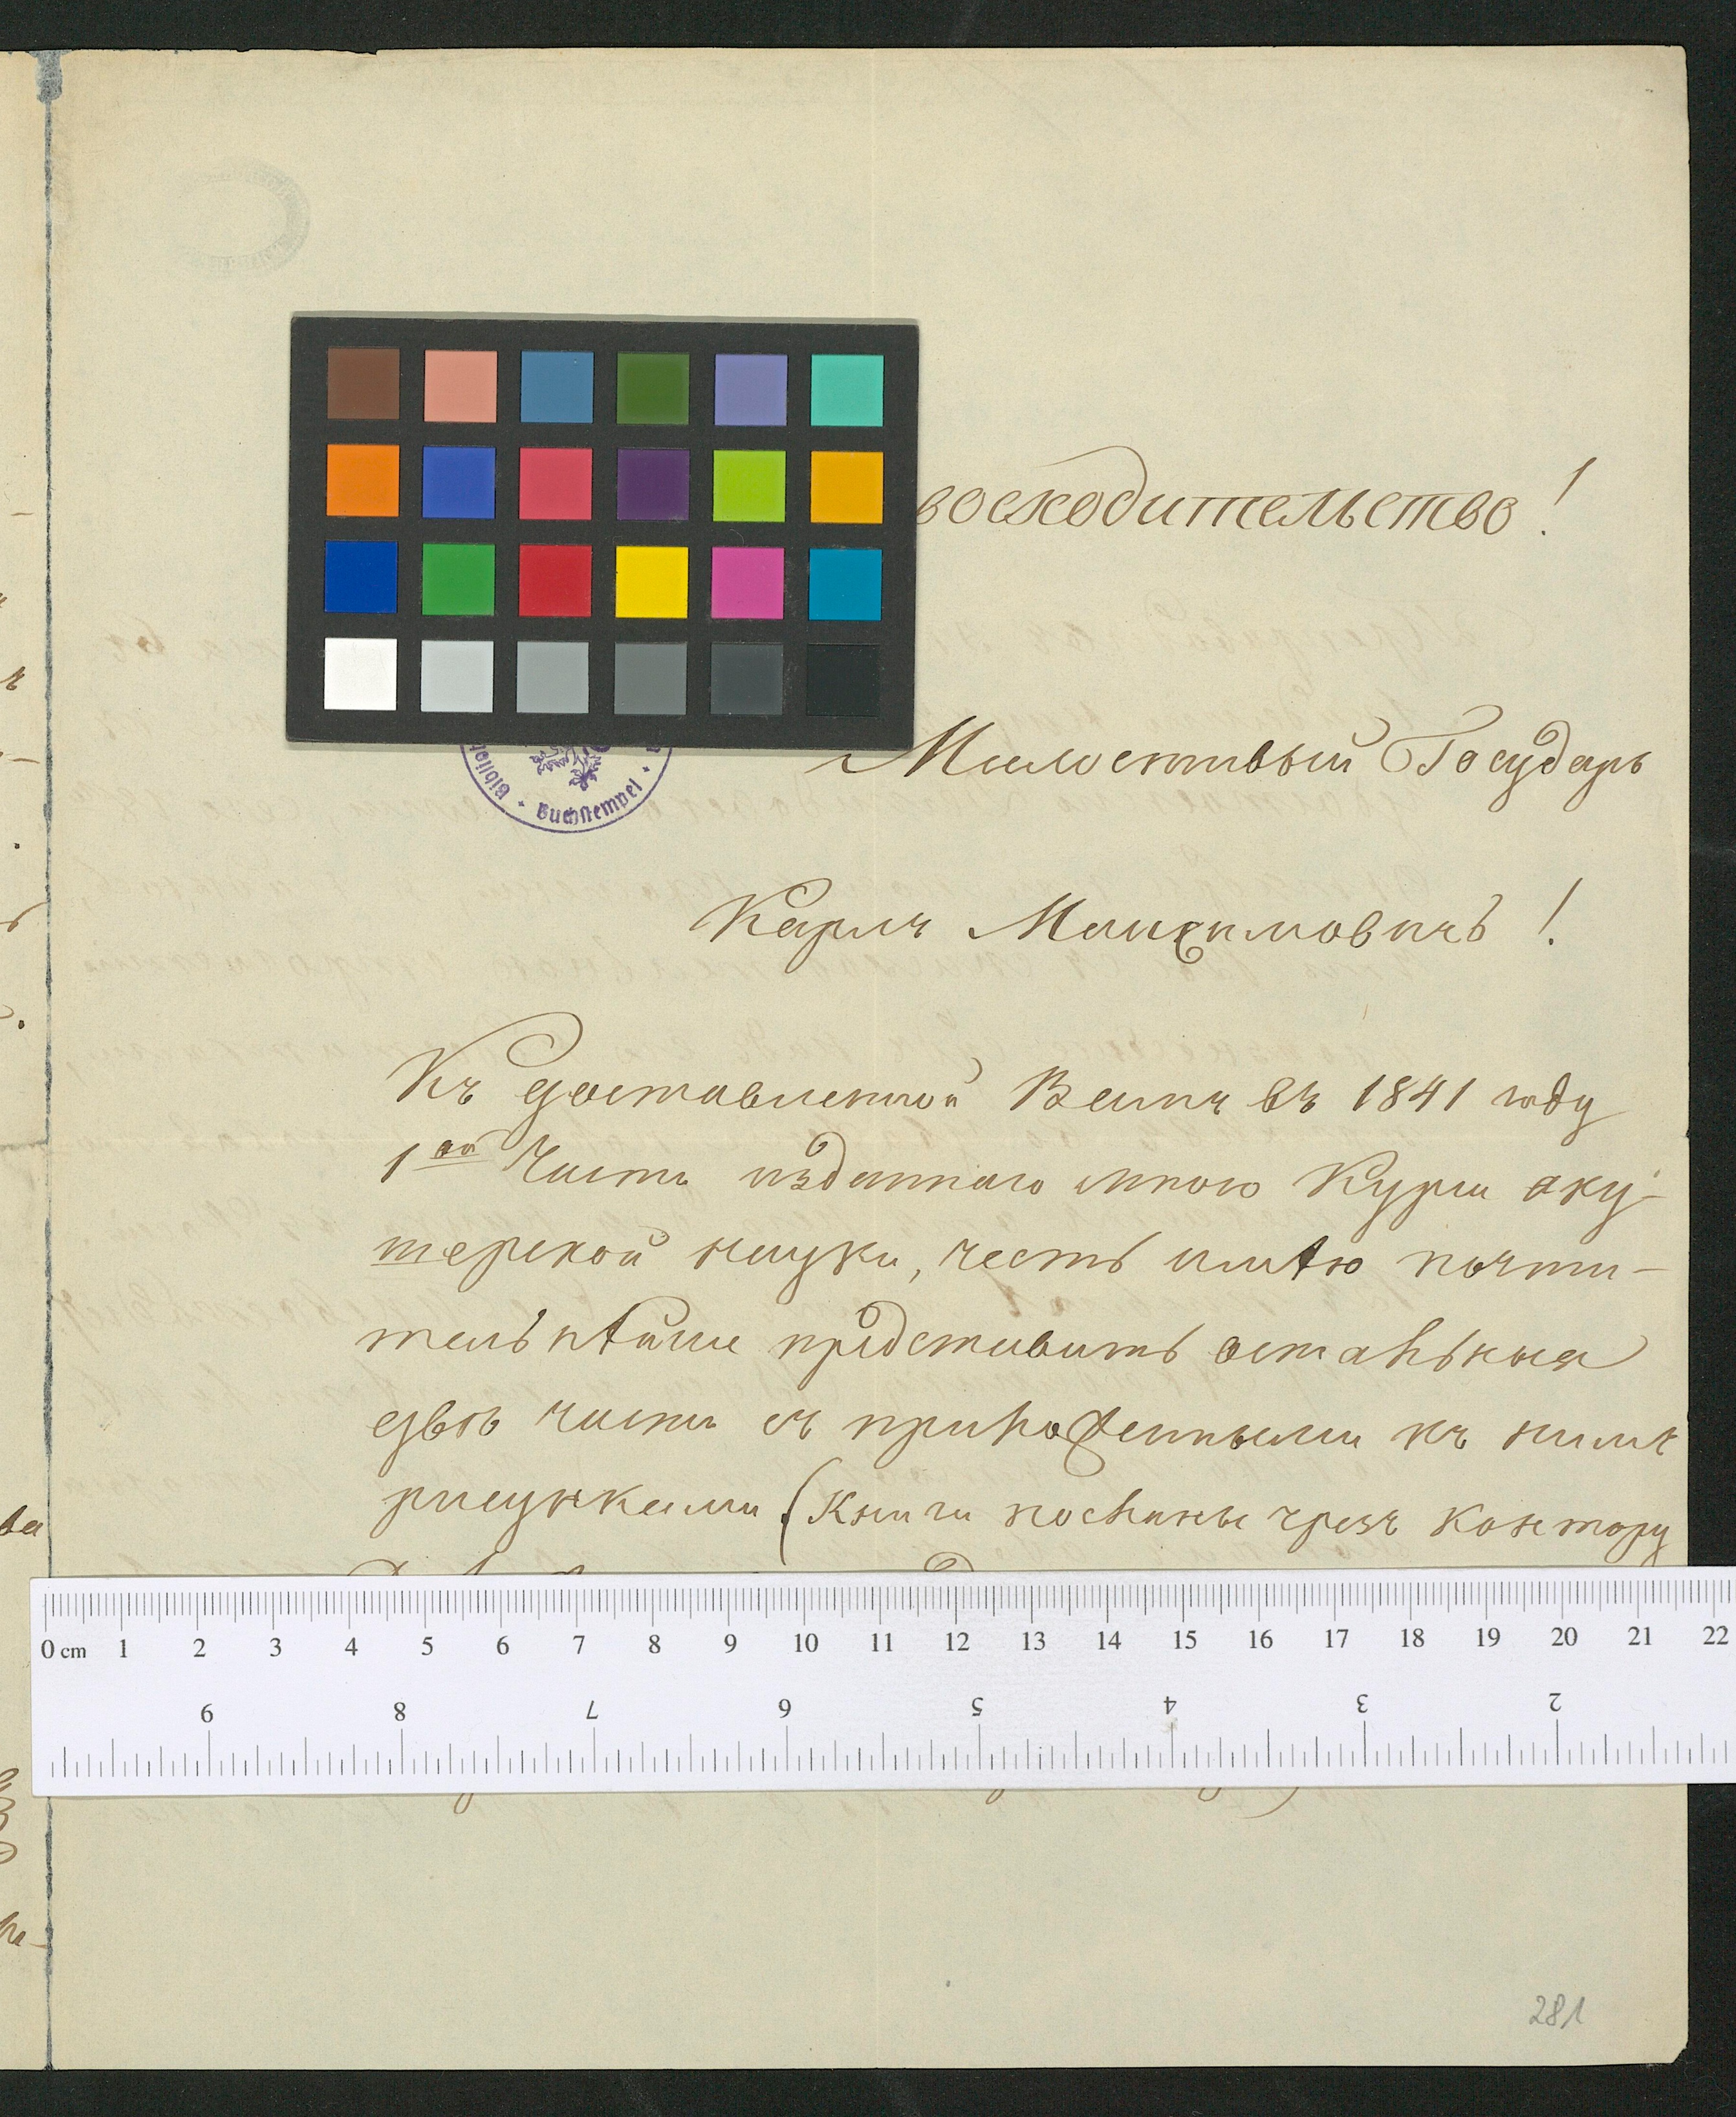 восходительство!
Милостивый Государь
Карлъ Максимовичъ!
Къ доставленной Вамъ въ 1841 году
1ой Части изданнаго мною Курса аку-
шерской науки, честь имѣю почти-
тельнѣйше представить остальныя
двѣ части съ приложенными къ нимъ
рисунками (Книги посланы чрезъ контору
0 cm 1 2 3 4 5 6 7 8 9 10 11 12 13 14 15 16 17 18 19 20 21 22
9 8 7 6 5 4 3 2
Buchstempel
281